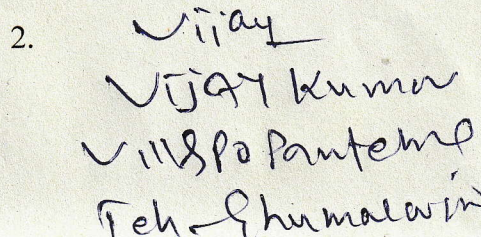 2. Vijay
VIJAY Kumar
Vill & PO Pantehra
Teh-Ghumarwin